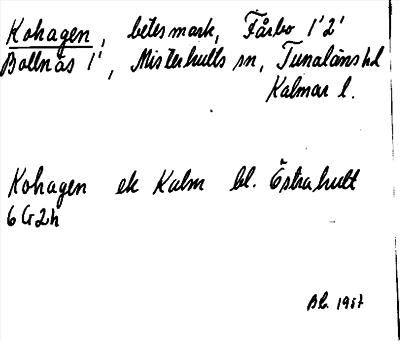 Kohagen, betesmark, Fårbo 1'2'
Bollnäs 1', Misterhults sn, Tunaläns hd
Kalmar l.
Kohagen ek Kalm bl. Östrahult
6G2h
BL. 1957